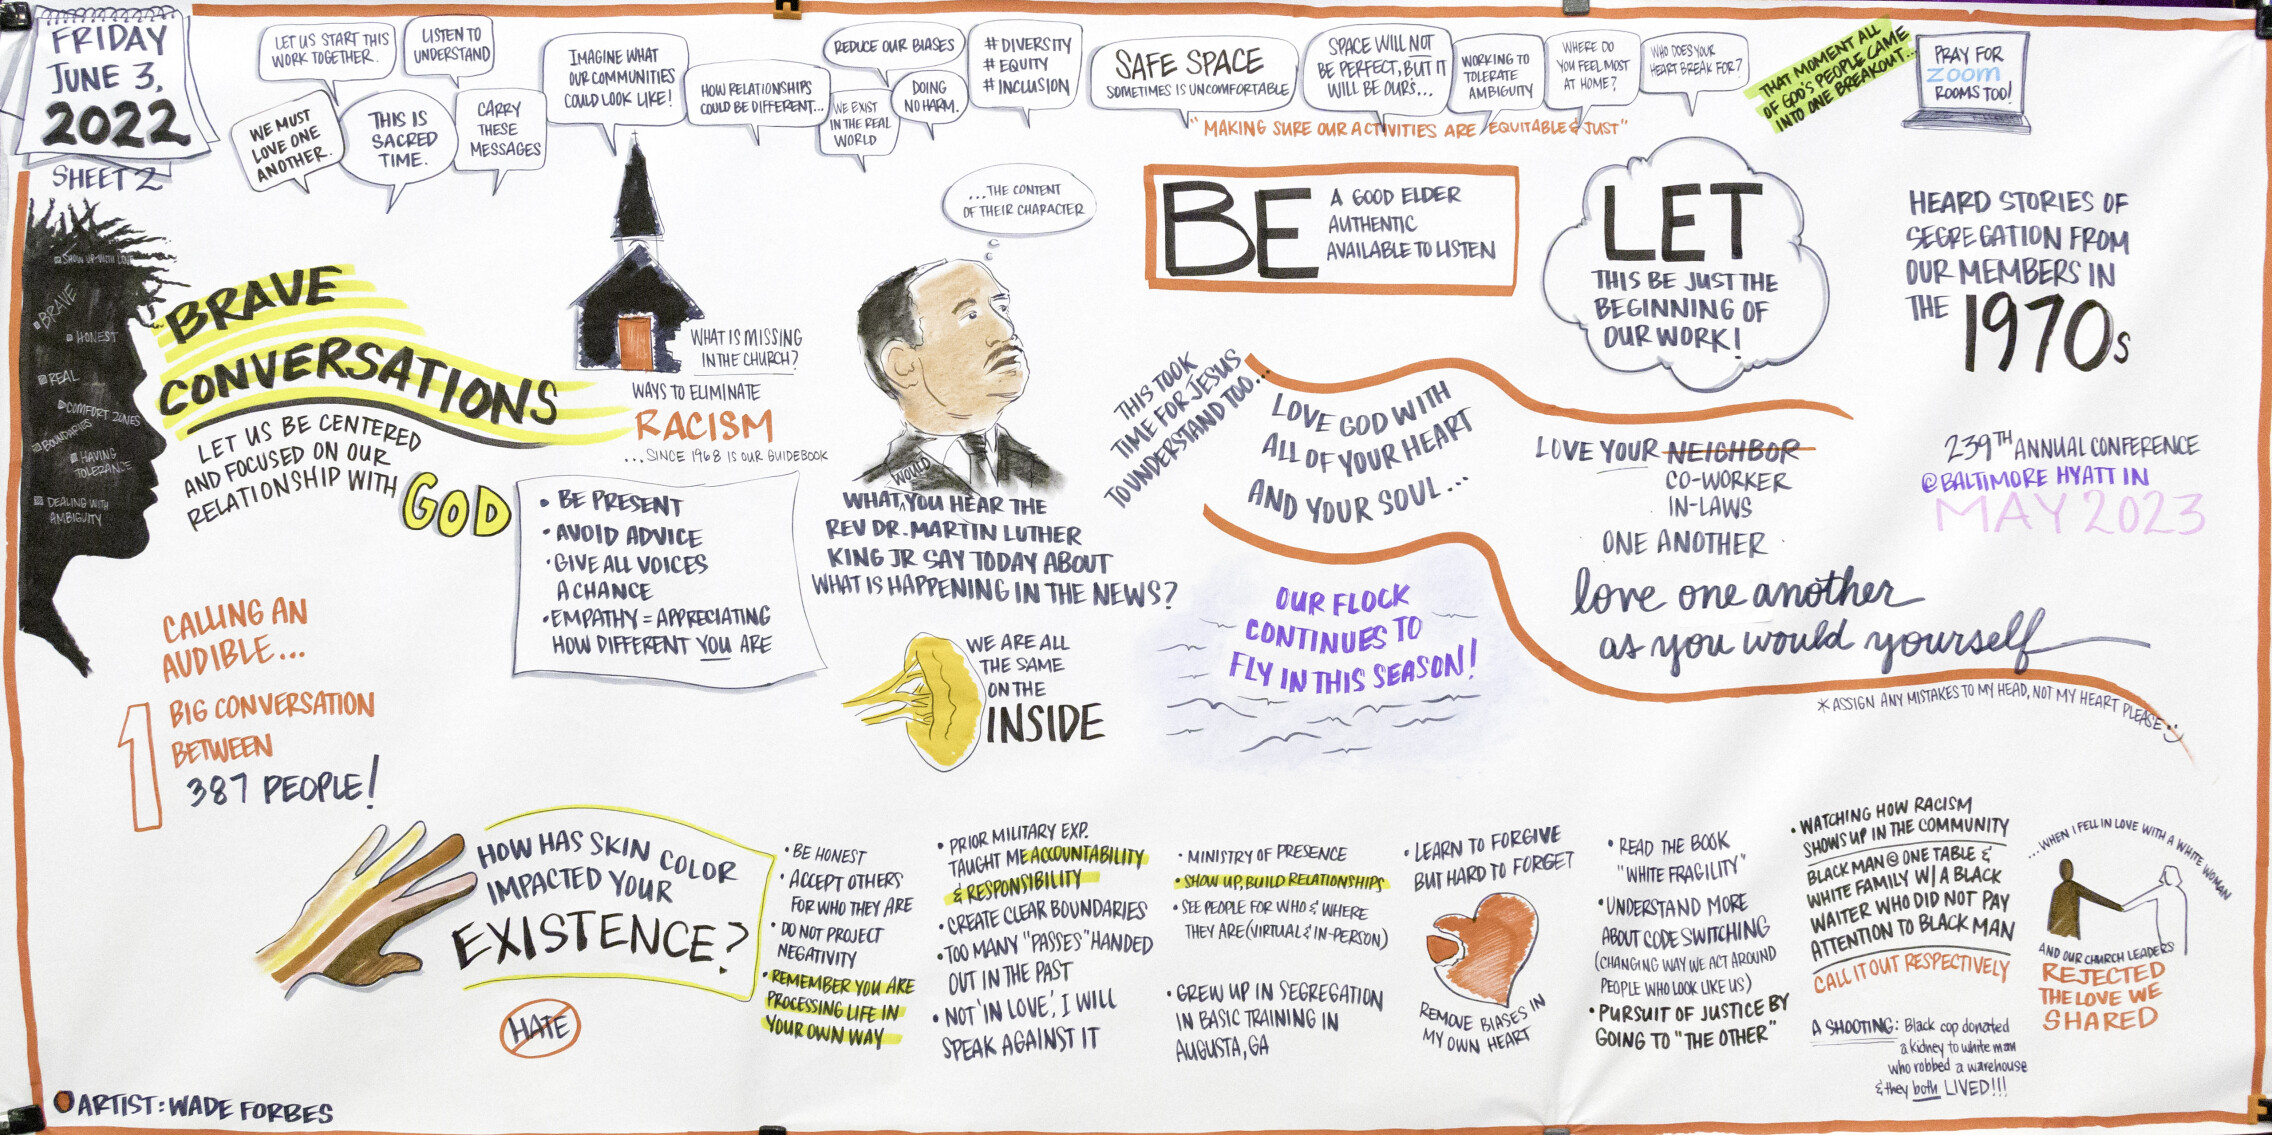 FRIDAY
JUNE 3,
2022
SHEET 2
LET US START THIS
WORK TOGETHER.
LISTEN TO
UNDERSTAND
WE MUST
LOVE ONE
ANOTHER.
THIS IS
SACRED
TIME.
CARRY
THESE
MESSAGES
IMAGINE WHAT
OUR COMMUNITIES
COULD LOOK LIKE!
HOW RELATIONSHIPS
COULD BE DIFFERENT...
REDUCE OUR BIASES
WE EXIST
IN THE REAL
WORLD
DOING
NO HARM.
# DIVERSITY
# EQUITY
# INCLUSION
SAFE SPACE
SOMETIMES IS UNCOMFORTABLE
SPACE WILL NOT
BE PERFECT, BUT IT
WILL BE OURS...
WORKING TO
TOLERATE
AMBIGUITY
WHERE DO
YOU FEEL MOST
AT HOME?
WHO DOES YOUR
HEART BREAK FOR?
"MAKING SURE OUR ACTIVITIES ARE EQUITABLE & JUST"
THAT MOMENT ALL
OF GOD'S PEOPLE CAME
INTO ONE BREAKOUT...
PRAY FOR
zoom
ROOMS TOO!
SHOW UP WITH LOVE
BRAVE
HONEST
REAL
COMFORT ZONES
BOUNDARIES
HAVING
TOLERANCE
DEALING WITH
AMBIGUITY
BRAVE
CONVERSATIONS
LET US BE CENTERED
AND FOCUSED ON OUR
RELATIONSHIP WITH
GOD
WHAT IS MISSING
IN THE CHURCH?
WAYS TO ELIMINATE
RACISM
...SINCE 1968 IS OUR GUIDEBOOK
• BE PRESENT
• AVOID ADVICE
• GIVE ALL VOICES
A CHANCE
• EMPATHY = APPRECIATING
HOW DIFFERENT YOU ARE
...THE CONTENT
OF THEIR CHARACTER
WOULD
WHAT YOU HEAR THE
REV DR. MARTIN LUTHER
KING JR SAY TODAY ABOUT
WHAT IS HAPPENING IN THE NEWS?
BE
A GOOD ELDER
AUTHENTIC
AVAILABLE TO LISTEN
LET
THIS BE JUST THE
BEGINNING OF
OUR WORK!
HEARD STORIES OF
SEGREGATION FROM
OUR MEMBERS IN
THE 1970s
THIS TOOK
TIME FOR JESUS
TO UNDERSTAND TOO...
LOVE GOD WITH
ALL OF YOUR HEART
AND YOUR SOUL...
LOVE YOUR NEIGHBOR
CO-WORKER
IN-LAWS
ONE ANOTHER
love one another
as you would yourself
239TH ANNUAL CONFERENCE
@ BALTIMORE HYATT IN
MAY 2023
* ASSIGN ANY MISTAKES TO MY HEAD, NOT MY HEART PLEASE :)
CALLING AN
AUDIBLE...
1 BIG CONVERSATION
BETWEEN
387 PEOPLE!
WE ARE ALL
THE SAME
ON THE
INSIDE
OUR FLOCK
CONTINUES TO
FLY IN THIS SEASON!
HOW HAS SKIN COLOR
IMPACTED YOUR
EXISTENCE?
HATE
• BE HONEST
• ACCEPT OTHERS
FOR WHO THEY ARE
• DO NOT PROJECT
NEGATIVITY
• REMEMBER YOU ARE
PROCESSING LIFE IN
YOUR OWN WAY
• PRIOR MILITARY EXP.
TAUGHT ME ACCOUNTABILITY
& RESPONSIBILITY
• CREATE CLEAR BOUNDARIES
• TOO MANY "PASSES" HANDED
OUT IN THE PAST
• NOT 'IN LOVE', I WILL
SPEAK AGAINST IT
• MINISTRY OF PRESENCE
• SHOW UP, BUILD RELATIONSHIPS
• SEE PEOPLE FOR WHO & WHERE
THEY ARE (VIRTUAL & IN-PERSON)
• GREW UP IN SEGREGATION
IN BASIC TRAINING IN
AUGUSTA, GA
• LEARN TO FORGIVE
BUT HARD TO FORGET
REMOVE BIASES IN
MY OWN HEART
• READ THE BOOK
"WHITE FRAGILITY"
• UNDERSTAND MORE
ABOUT CODE SWITCHING
(CHANGING WAY WE ACT AROUND
PEOPLE WHO LOOK LIKE US)
• PURSUIT OF JUSTICE BY
GOING TO "THE OTHER"
• WATCHING HOW RACISM
SHOWS UP IN THE COMMUNITY
BLACK MAN @ ONE TABLE &
WHITE FAMILY W/ A BLACK
WAITER WHO DID NOT PAY
ATTENTION TO BLACK MAN
CALL IT OUT RESPECTIVELY
A SHOOTING: Black cop donated
a kidney to white man
who robbed a warehouse
& they both LIVED!!!
...WHEN I FELL IN LOVE WITH A WHITE WOMAN
AND OUR CHURCH LEADERS
REJECTED
THE LOVE WE
SHARED
ARTIST: WADE FORBES